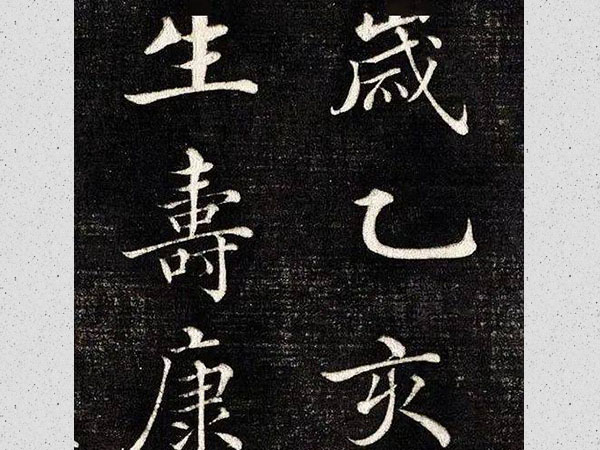 歲乙亥
生壽康